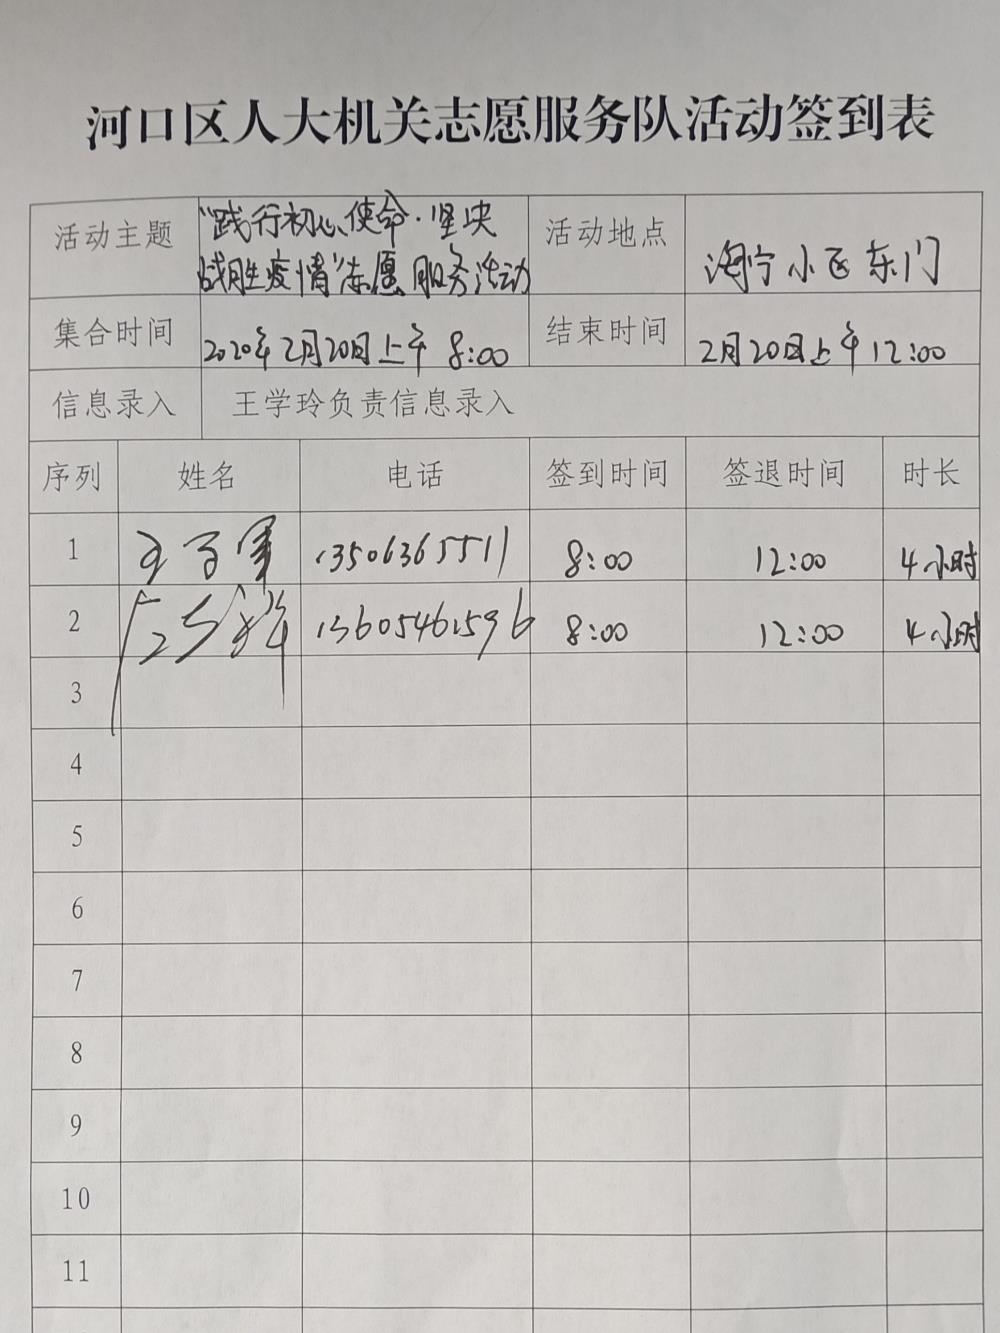 河口区人大机关志愿服务队活动签到表
活动主题
"践行初心使命·坚决
战胜疫情"志愿服务活动
活动地点
海宁小区东门
集合时间
2020年2月20日上午 8:00
结束时间
2月20日上午12:00
信息录入
王学玲负责信息录入
序列 姓名 电话 签到时间 签退时间 时长
1 13506365511 8:00 12:00 4小时
2 13605461596 8:00 12:00 4小时
3
4
5
6
7
8
9
10
11